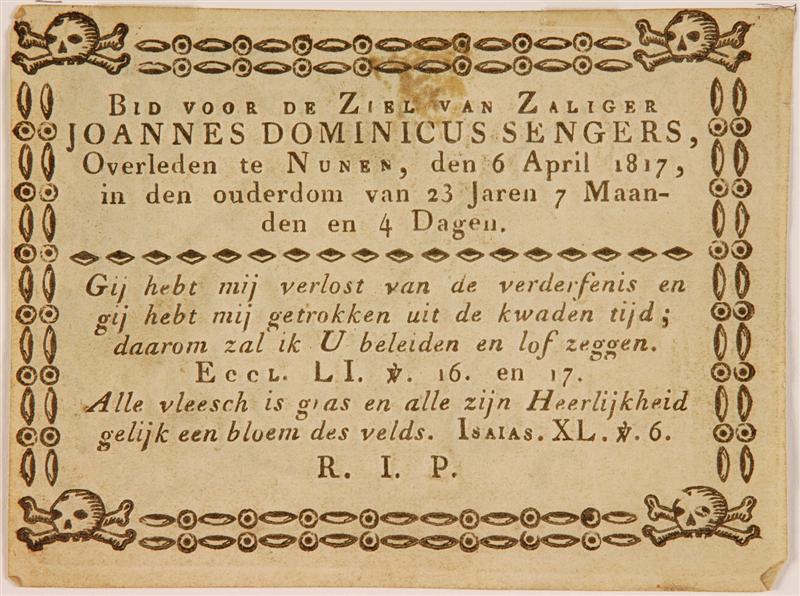 BID VOOR DE ZIEL VAN ZALIGER
JOANNES DOMINICUS SENGERS,
Overleden te NUNEN, den 6 April 1817,
in den ouderdom van 23 Jaren 7 Maan-
den en 4 Dagen.
Gij hebt mij verlost van de verderfenis en
gij hebt mij getrokken uit de kwaden tijd;
daarom zal ik U beleiden en lof zeggen.
ECCL. LI. ℣. 16. en 17.
Alle vleesch is gras en alle zijn Heerlijkheid
gelijk een bloem des velds. ISAIAS. XL. ℣. 6.
R. I. P.